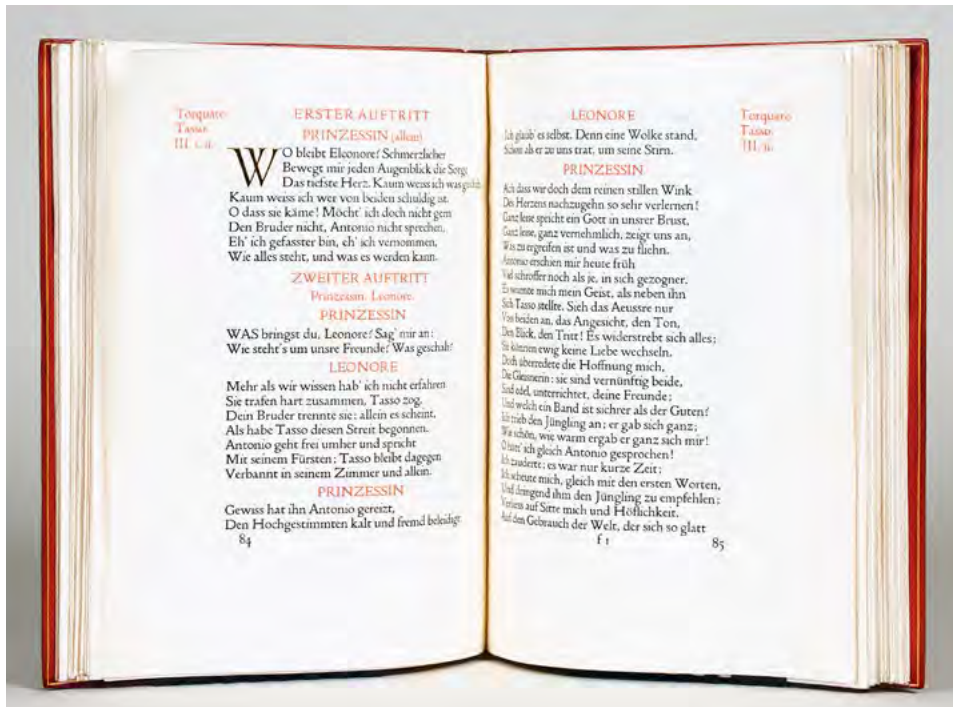 Torquato
Tasso.
III. i. ii.
ERSTER AUFTRITT
PRINZESSIN (allein)
WO bleibt Eleonore? Schmerzlicher
Bewegt mir jeden Augenblick die Sorge
Das tiefste Herz. Kaum weiss ich was
Kaum weiss ich wer von beiden schuldig ist.
O dass sie käme! Möcht' ich doch nicht gern
Den Bruder nicht, Antonio nicht sprechen,
Eh' ich gefasster bin, eh' ich vernommen,
Wie alles steht, und was es werden kann.
ZWEITER AUFTRITT
Prinzessin. Leonore.
PRINZESSIN
WAS bringst du, Leonore? Sag' mir an:
Wie steht's um unsre Freunde? Was geschah?
LEONORE
Mehr als wir wissen hab' ich nicht erfahren.
Sie trafen hart zusammen, Tasso zog,
Dein Bruder trennte sie: allein es scheint,
Als habe Tasso diesen Streit begonnen.
Antonio geht frei umher und spricht
Mit seinem Fürsten: Tasso bleibt dagegen
Verbannt in seinem Zimmer und allein.
PRINZESSIN
Gewiss hat ihn Antonio gereizt,
Den Hochgestimmten kalt und fremd beleidigt.
84
LEONORE
Ich glaub' es selbst. Denn eine Wolke stand,
Schon als er zu uns trat, um seine Stirn.
PRINZESSIN
Ach dass wir doch dem reinen stillen Wink
Des Herzens nachzugehn so sehr verlernen!
Ganz leise spricht ein Gott in unsrer Brust,
Ganz leise, ganz vernehmlich, zeigt uns an,
Was zu ergreifen ist und was zu fliehn.
Antonio erschien mir heute früh
Viel schroffer noch als je, in sich gezogner.
Es warnte mich mein Geist, als neben ihn
Sich Tasso stellte. Sieh das Aeussre nur
Von beiden an, das Angesicht, den Ton,
Den Blick, den Tritt! Es widerstrebt sich alles;
Sie können ewig keine Liebe wechseln.
Doch überredete die Hoffnung mich,
Die Gleisnerin: sie sind vernünftig beide,
Sind edel, unterrichtet, deine Freunde;
Und welch ein Band ist sichrer als der Guten?
Ich trieb den Jüngling an; er gab sich ganz;
Wie schön, wie warm ergab er ganz sich mir!
O hätt' ich gleich Antonio gesprochen!
Ich zauderte; es war nur kurze Zeit;
Ich scheute mich, gleich mit den ersten Worten,
Und dringend ihm den Jüngling zu empfehlen;
Verliess auf Sitte mich und Höflichkeit,
Auf den Gebrauch der Welt, der sich so glatt
f 1
85
Torquato
Tasso.
III. ii.